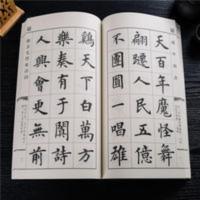 天百年魔怪舞
翩躚人民五億
不團圓一唱雄
鷄天下白萬方
樂奏有于闐詩
人興會更無前